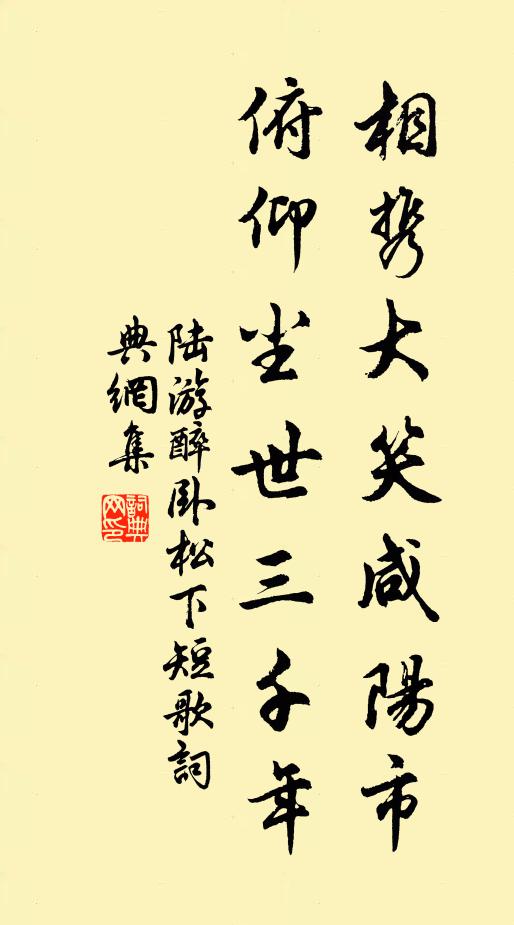 相携大笑咸陽市
俯仰尘世三千年
陆游醉卧松下短歌詞
典網集
詞典网印